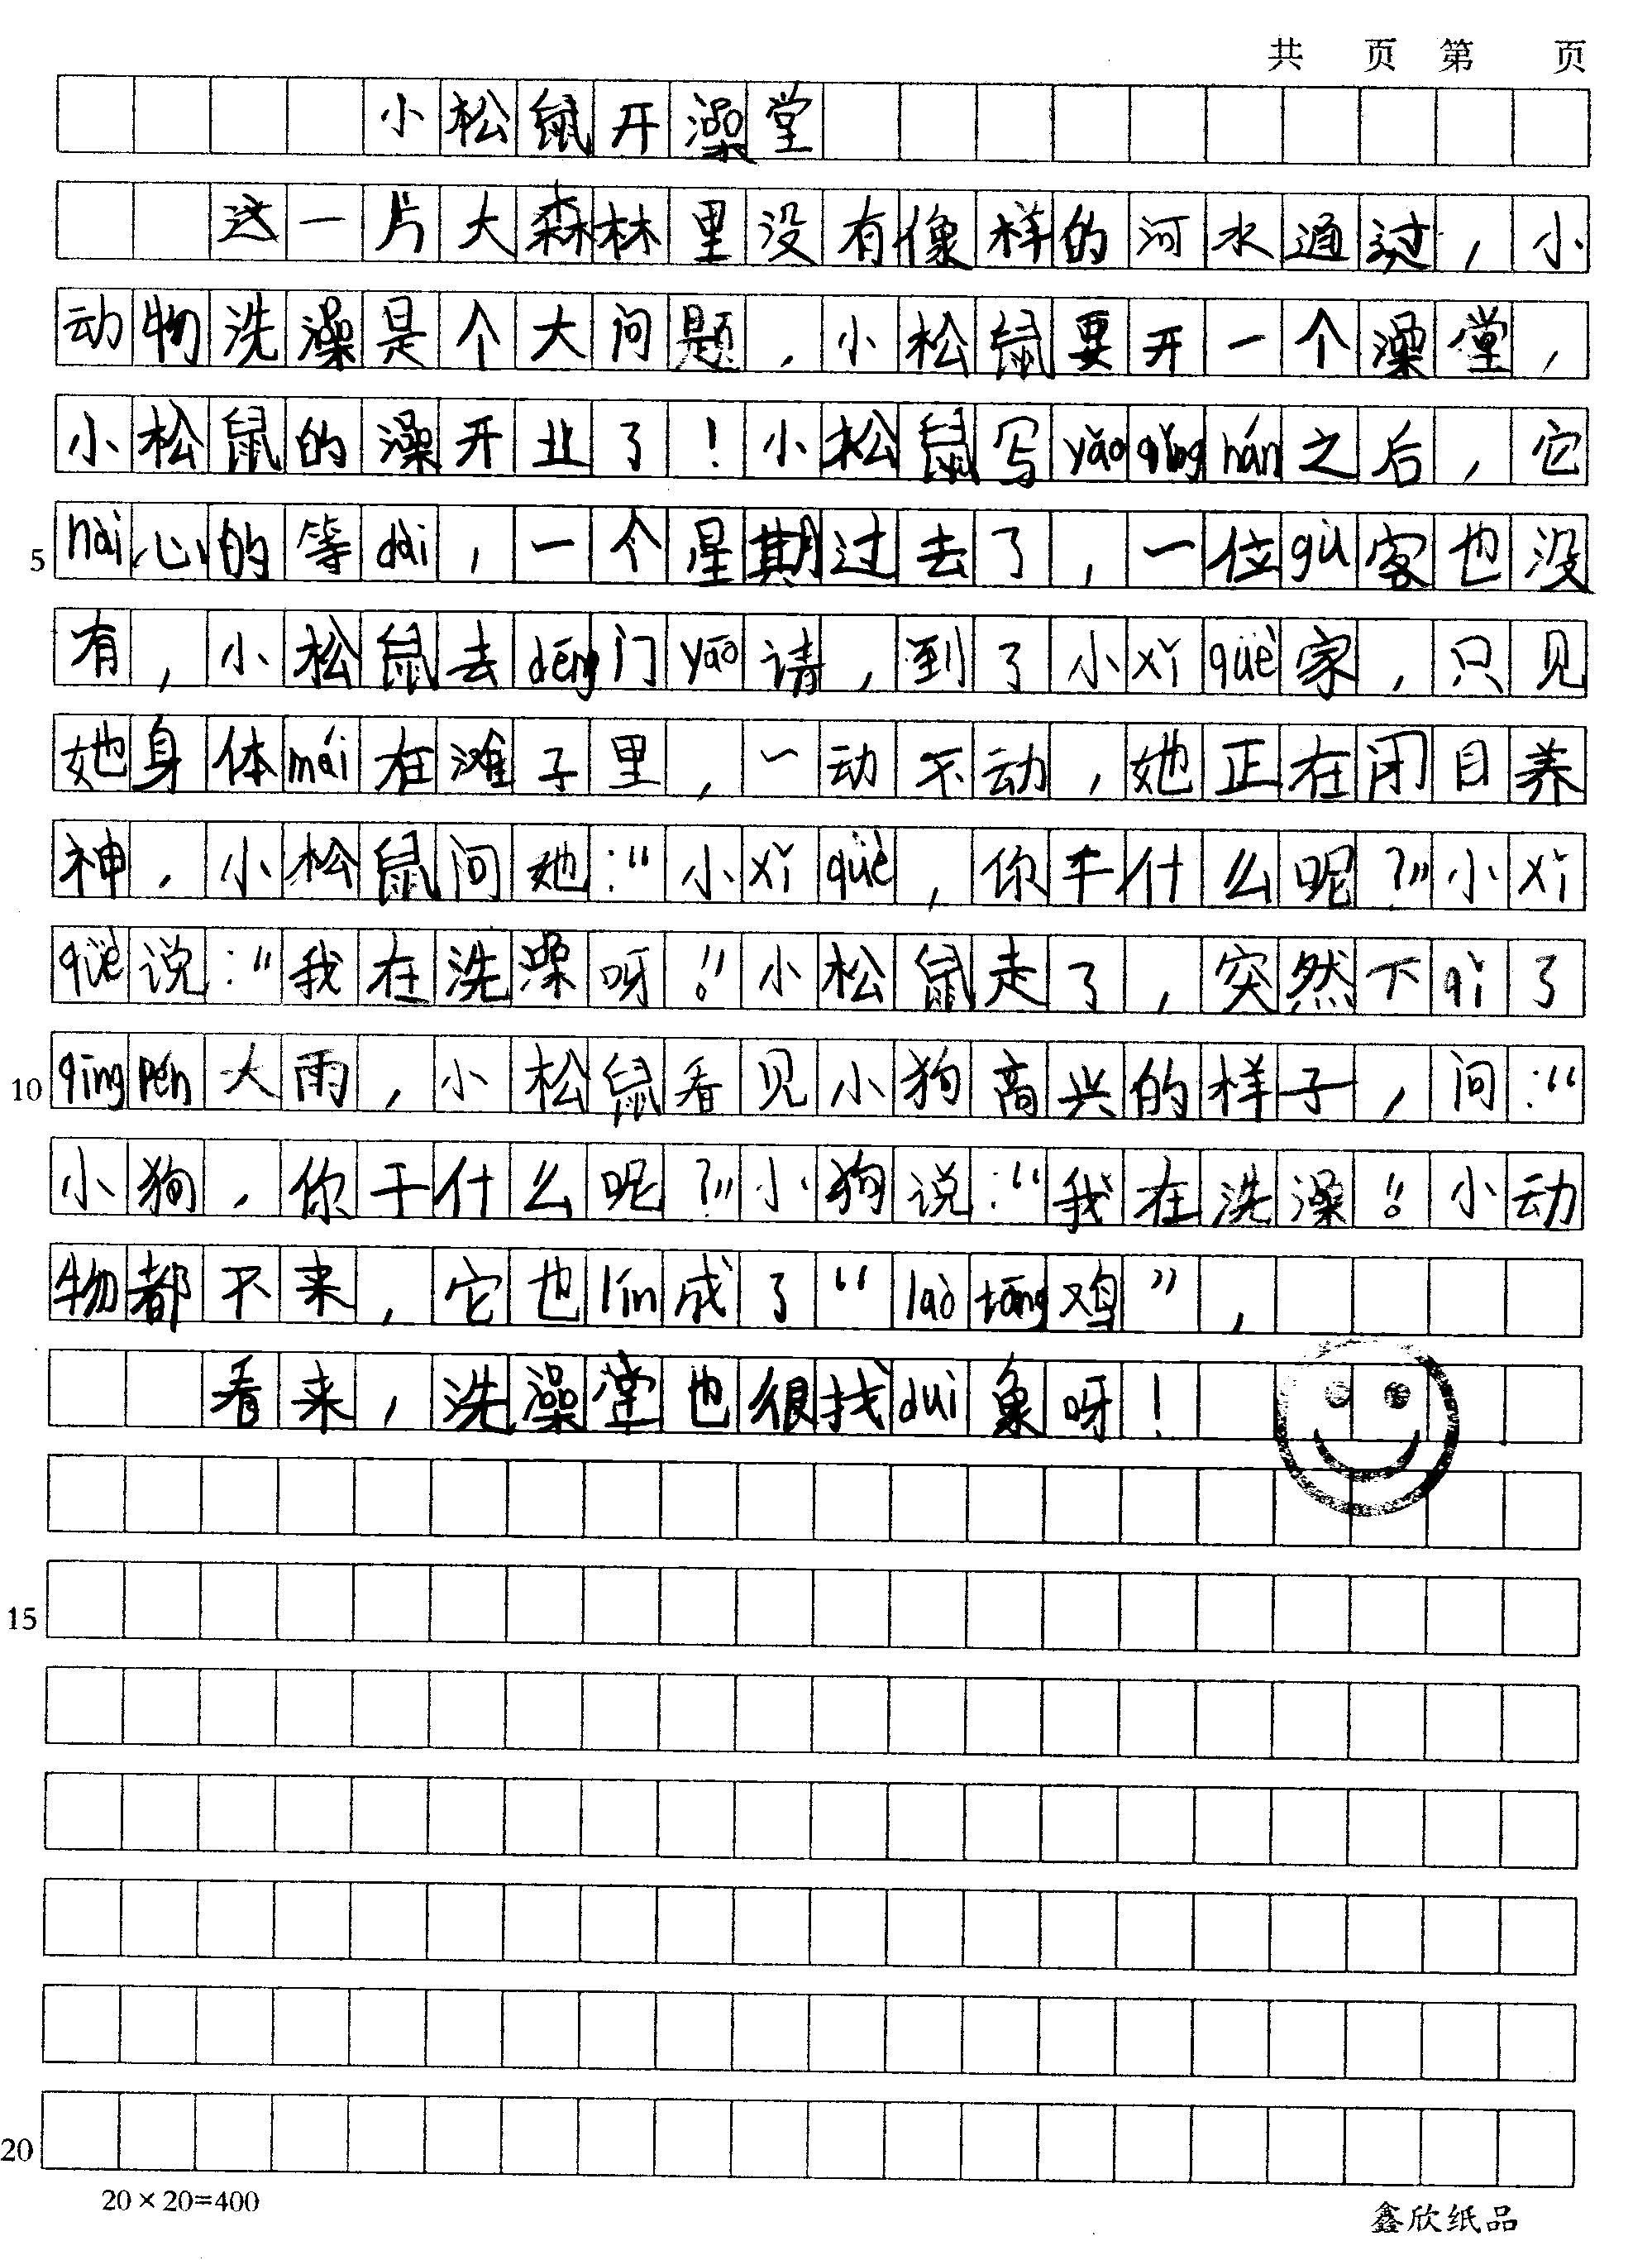 共 页 第 页
小松鼠开澡堂
这一片大森林里没有像样的河水通过,小
动物洗澡是个大问题,小松鼠要开一个澡堂,
小松鼠的澡开业了!小松鼠写yāoqǐnghán之后,它
nài心的等dài,一个星期过去了,一位gù客也没
有,小松鼠去dēng门yāo请,到了小xǐquè家,只见
她身体mái在滩子里,一动不动,她正在闭目养
神,小松鼠问她:“小xǐquè,你干什么呢?”小xǐ
què说:“我在洗澡呀!”小松鼠走了,突然下qǐ了
5
qīngpén大雨,小松鼠看见小狗高兴的样子,问:“
10
小狗,你干什么呢?”小狗说:“我在洗澡!”小动
物都不来,它也lín成了“laòtāng鸡”,
看来,洗澡堂也很找duì象呀!
15
20
20×20=400
鑫欣纸品